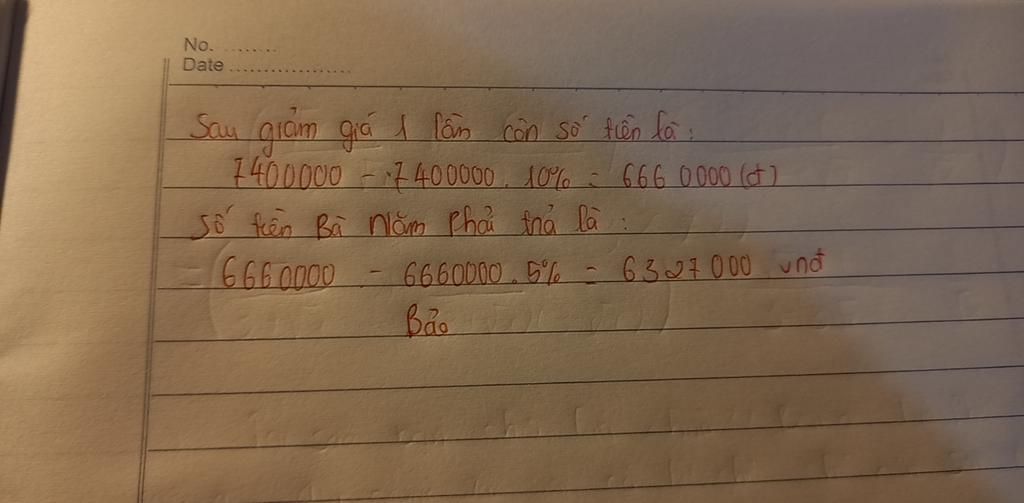 No. ........
Date .................
Sau giảm giá 1 lần còn số tiền là:
7400000 - 7400000. 10% = 666 0000 (đ)
Số tiền Bà Năm Phải trả là:
= 6660000 - 6660000. 5% = 6327000 vnđ
Bảo